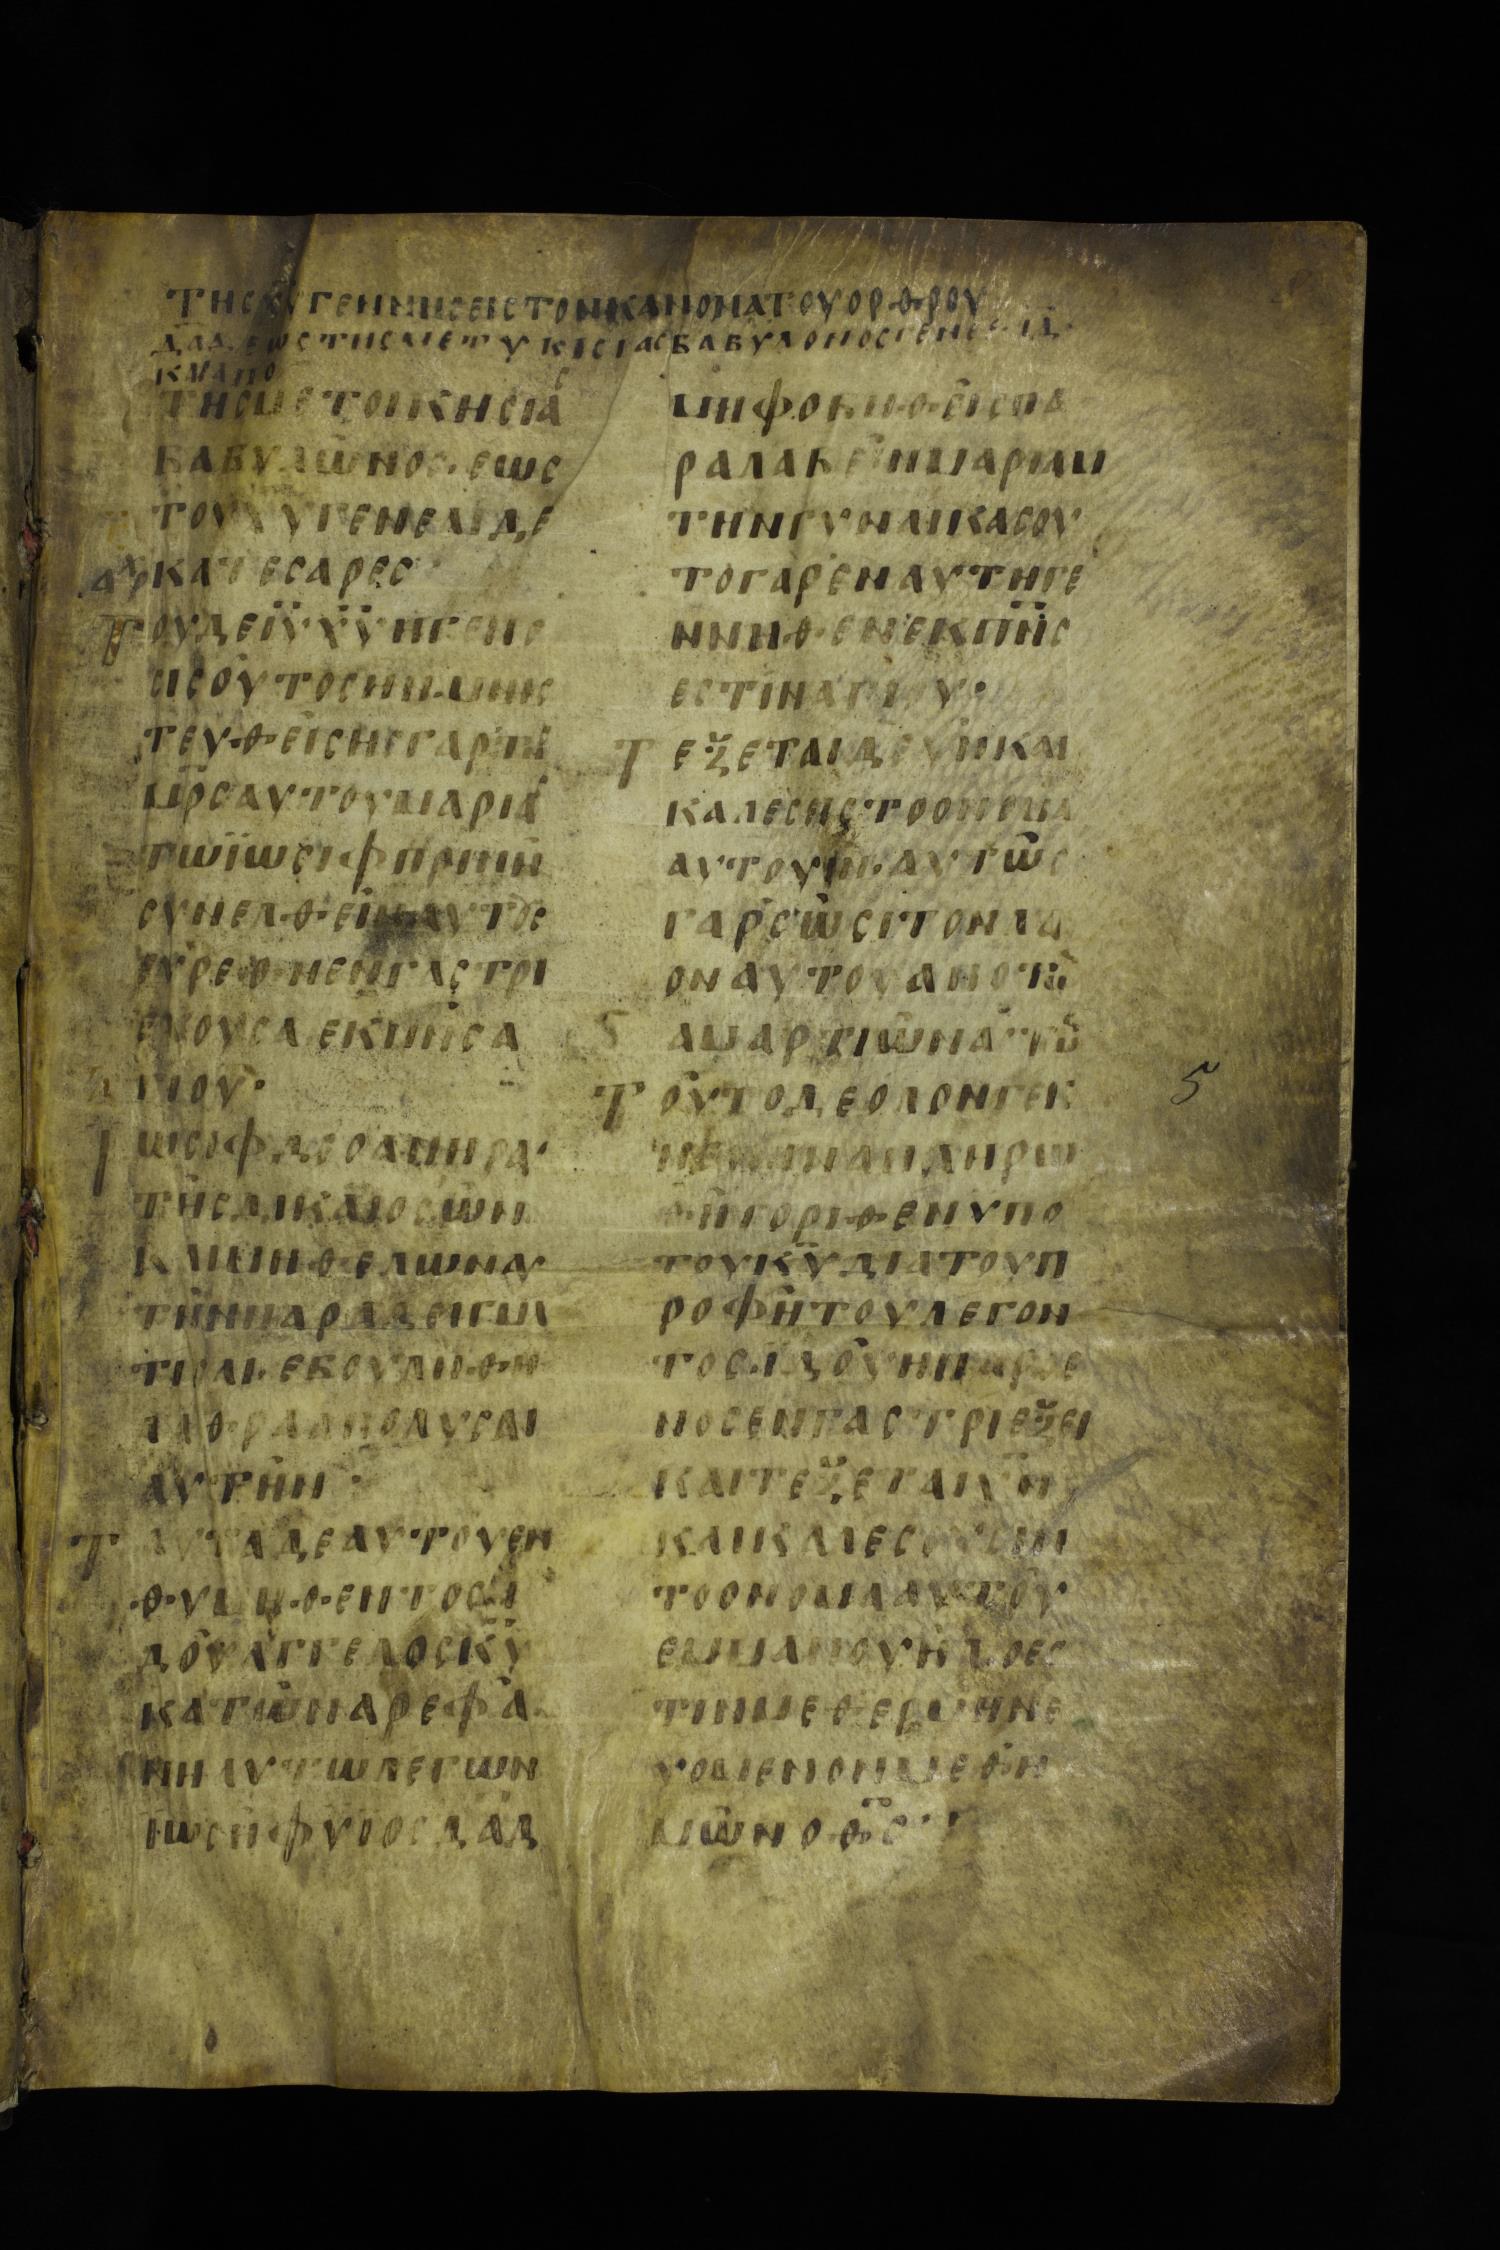 ΤΗΣ ΧΥ ΓΕΝΝΙΣΕΙΣ ΤΟΝ ΚΑΝΟΝΑ ΤΟΥ ΟΡΘΡΟΥ
ΔΑΔ ΕΩΣ ΤΗΣ ΜΕΤΥΚΙΣΙΑΣ ΒΑΒΥΛΟΝΟΣ ΓΕΝΕΕ ΙΔ
Κ ΑΠΟ
ΤΗΣ ΜΕΤΟΙΚΗΣΙΑΣ
ΒΑΒΥΛΩΝΟΣ· ΕΩΣ
ΤΟΥ ΧΥ ΓΕΝΕΑΙ ΔΕ
ΚΑΤΕΣΑΡΕΣ·
ΤΟΥ ΔΕ ΙΥ ΧΥ Η ΓΕΝΕ
ΣΙΣ ΟΥΤΟΣ ΗΝ· ΜΝΗΣ
ΤΕΥΘΕΙΣΗΣ ΓΑΡ ΤΗΣ
ΜΡΣ ΑΥΤΟΥ ΜΑΡΙΑΣ
ΤΩ ΙΩΣΙΦ ΠΡΗΝΗ
ΣΥΝΕΛΘΕΙΝ ΑΥΤΟΣ
ΕΥΡΕΘΗ ΕΝ ΓΑΣΤΡΙ
ΕΧΟΥΣΑ ΕΚ ΠΝΣ Α
ΓΙΟΥ·
ΙΩΣΙΦ ΔΕ Ο ΑΝΗΡ Α·
ΤΗΣ ΔΙΚΑΙΟΣ ΩΝ
Κ ΜΗ ΘΕΛΩΝ ΑΥ
ΤΗΝ ΠΑΡΑΔΕΙΓΜΑ
ΤΙΣΑΙ· ΕΒΟΥΛΗΘΗ
ΛΑΘΡΑ ΑΠΟΛΥΣΑΙ
ΑΥΤΗΝ·
ΤΑΥΤΑ ΔΕ ΑΥΤΟΥ ΕΝ
ΘΥΜΗΘΕΝΤΟΣ Ι
ΔΟΥ ΑΓΓΕΛΟΣ ΚΥ
ΚΑΤ ΩΝΑΡ ΕΦΑ
ΝΗ ΑΥΤΩ ΛΕΓΩΝ
ΙΩΣΗΦ ΥΙΟΣ ΔΑΔ
ΜΗ ΦΟΒΗΘΕΙΣ ΠΑ
ΡΑΛΑΒΕΙΝ ΜΑΡΙΑΜ
ΤΗΝ ΓΥΝΑΙΚΑ ΣΟΥ
ΤΟ ΓΑΡ ΕΝ ΑΥΤΗ ΓΕ
ΝΝΗΘΕΝ ΕΚ ΠΝΣ
ΕΣΤΙΝ ΑΓΙΟΥ·
ΤΕΞΕΤΑΙ ΔΕ ΥΝ ΚΑΙ
ΚΑΛΕΣΗΣ ΤΟ ΟΝΟΜΑ
ΑΥΤΟΥ ΙΝ· ΑΥΤΩΣ
ΓΑΡ ΣΩΣΙ ΤΟΝ ΛΑ
ΟΝ ΑΥΤΟΥ ΑΠΟ ΤΩ
ΑΜΑΡΤΙΩΝ ΑΥΤΩ
ΤΟΥΤΟ ΔΕ ΟΛΟΝ ΓΕΓ
ΟΝΕΝ ΙΝΑ ΠΛΗΡΩ
ΘΗ ΤΟ ΡΙΘΕΝ ΥΠΟ
ΤΟΥ ΚΥ ΔΙΑ ΤΟΥ Π
ΡΟΦΗΤΟΥ ΛΕΓΟΝ
ΤΟΣ· ΙΔΟΥ Η ΠΑΡΘΕ
ΝΟΣ ΕΝ ΓΑΣΤΡΙ ΕΞΕΙ
ΚΑΙ ΤΕΞΕΤΑΙ ΥΝ
ΚΑΙ ΚΑΛΕΣΟΥΣΙΝ
ΤΟ ΟΝΟΜΑ ΑΥΤΟΥ
ΕΜΜΑΝΟΥΗΛ Ο ΕΣ
ΤΙΝ ΜΕΘΕΡΜΗΝΕ
ΥΟΜΕΝΟΝ ΜΕΘ Η
ΜΩΝ Ο ΘΣ··
5